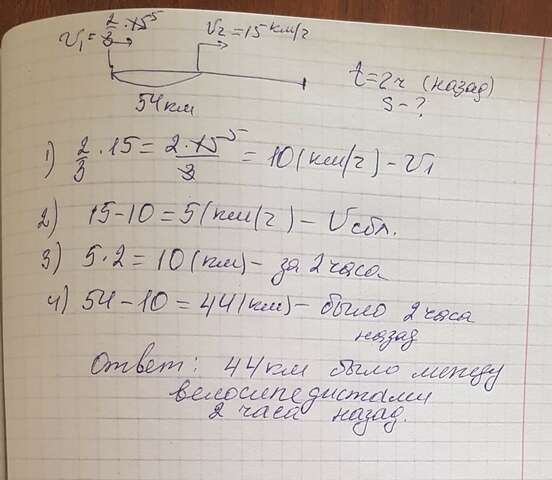 V₁ = 2/3 · 15 5
V₂ = 15 км/ч
54 км
t = 2 ч (назад)
S - ?
1) 2/3 · 15 = 2 · 15 5/3 = 10 (км/ч) - V₁
2) 15 - 10 = 5 (км/ч) - Vсбл.
3) 5 · 2 = 10 (км) - за 2 часа
4) 54 - 10 = 44 (км) - было 2 часа
назад
Ответ: 44 км было между
велосипедистами
2 часа назад.